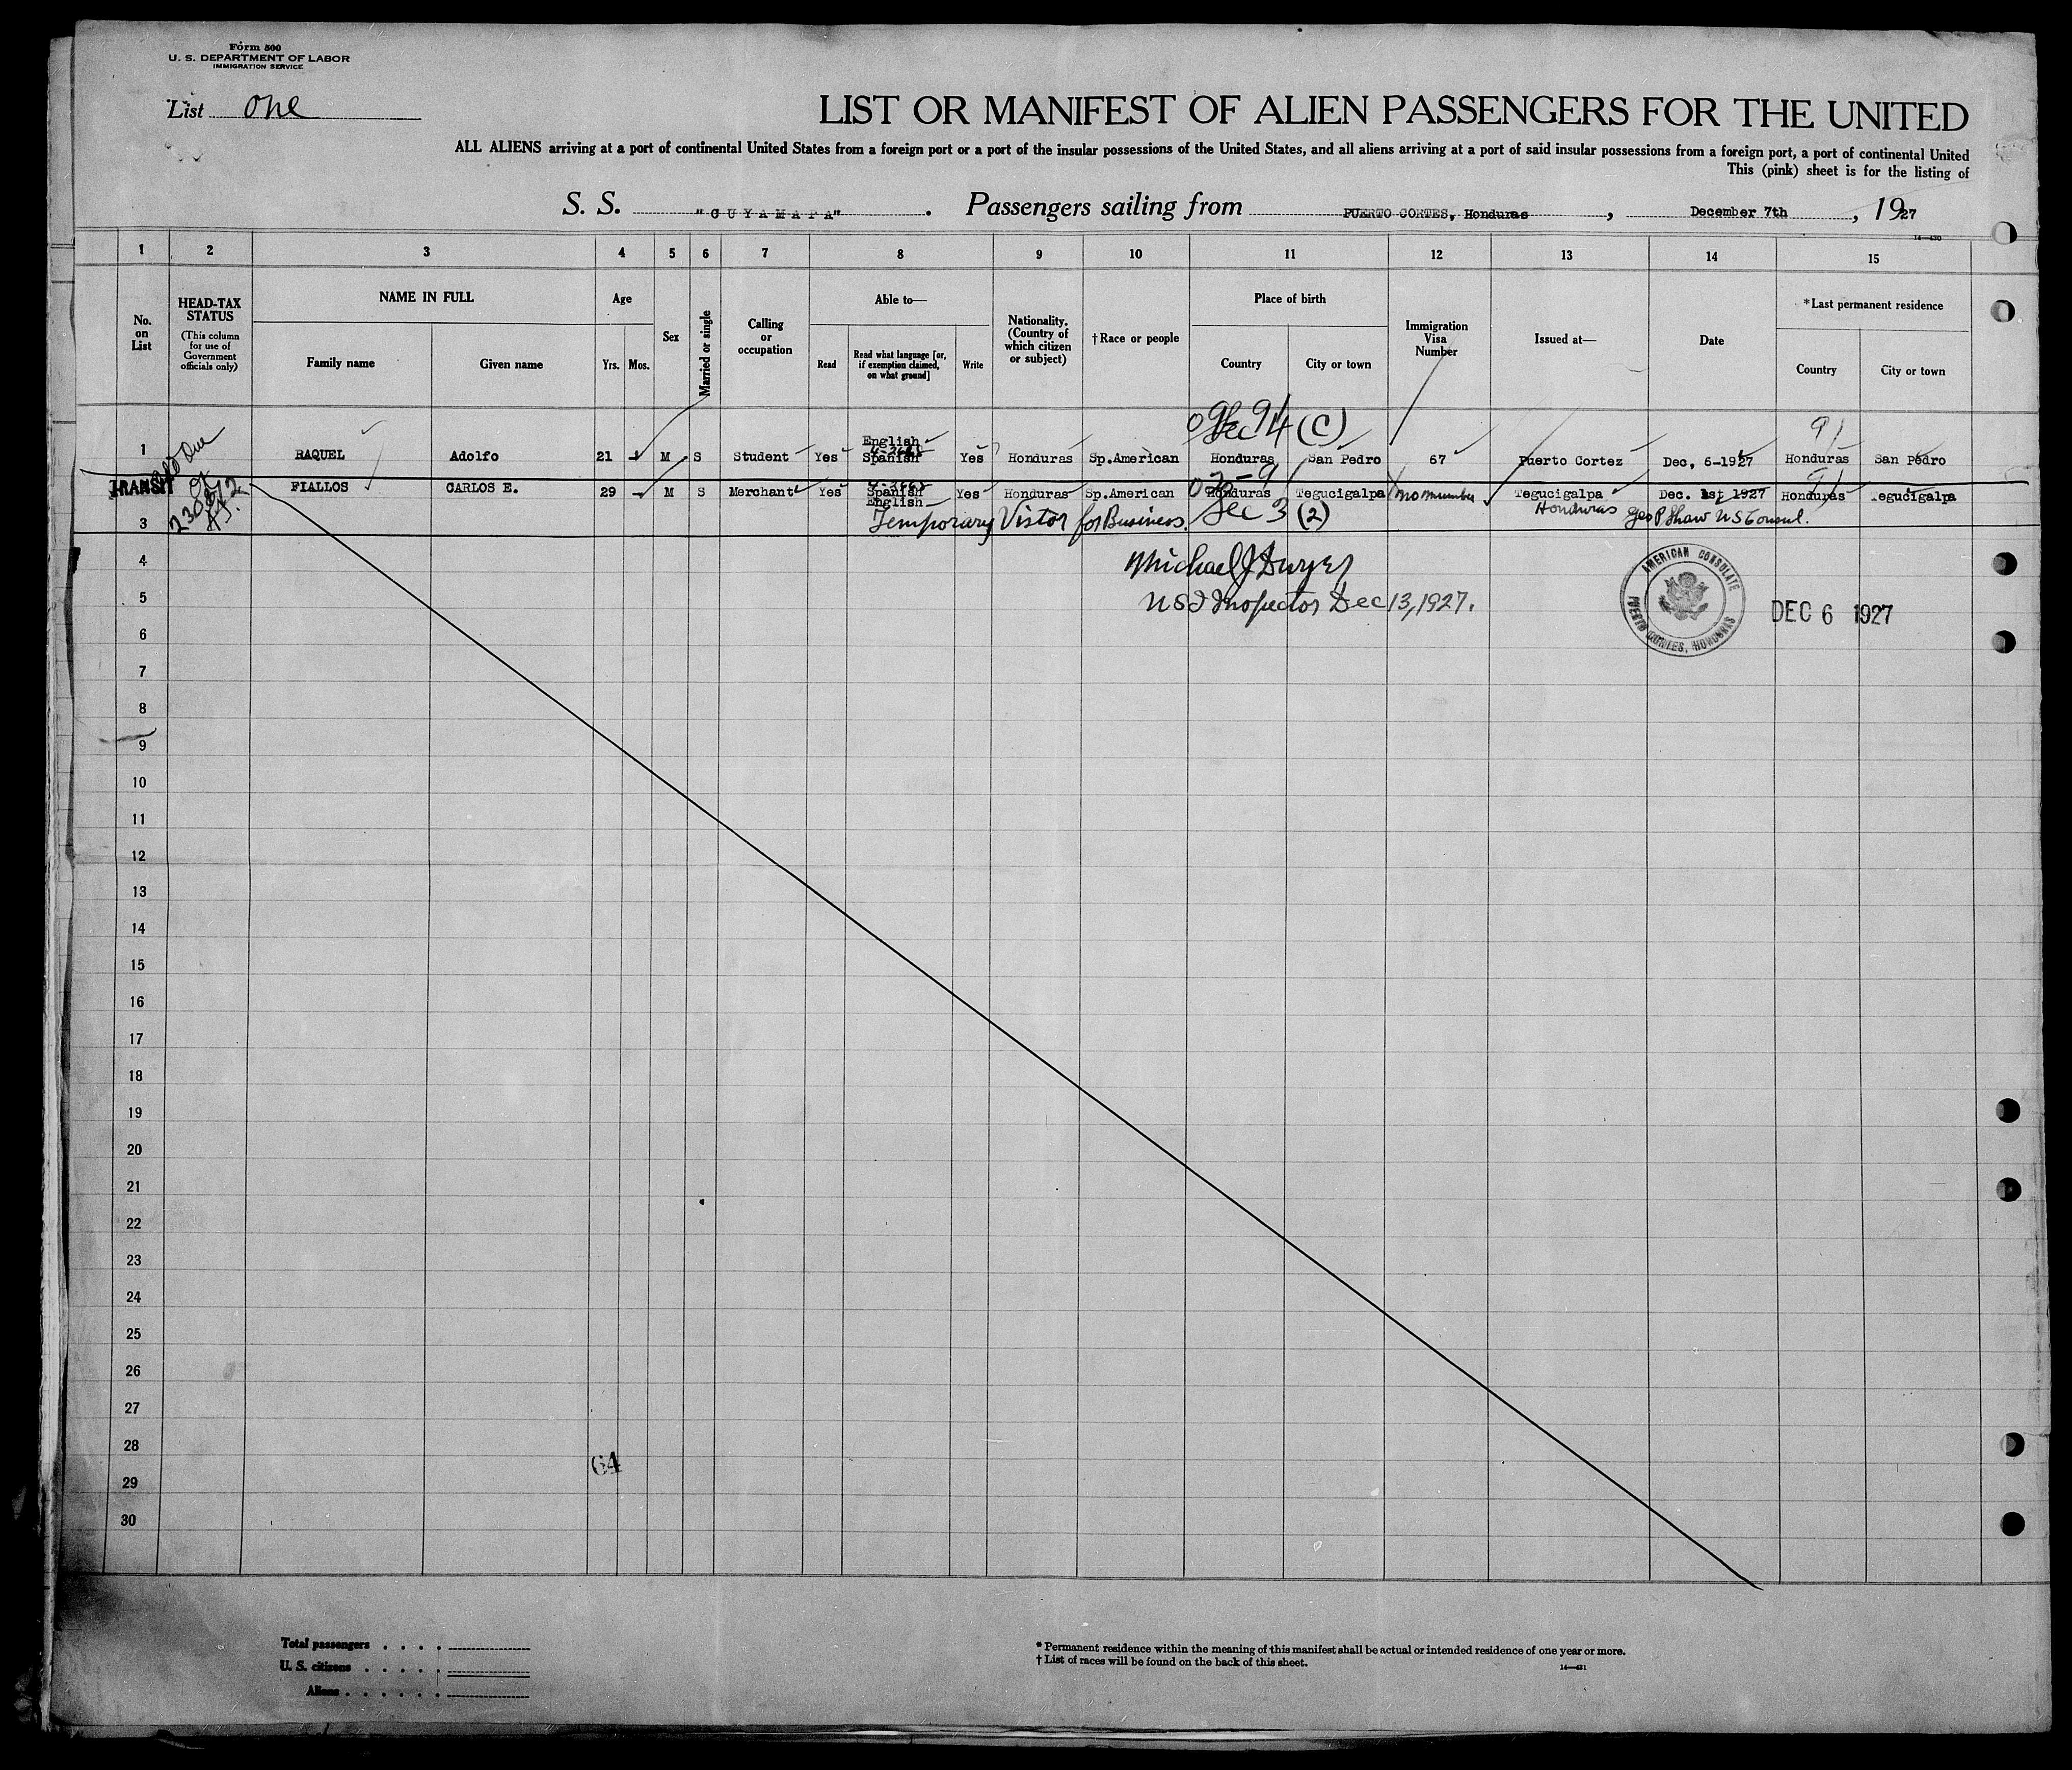 Form 500
U. S. DEPARTMENT OF LABOR
IMMIGRATION SERVICE
List one
LIST OR MANIFEST OF ALIEN PASSENGERS FOR THE UNITED
ALL ALIENS arriving at a port of continental United States from a foreign port or a port of the insular possessions of the United States, and all aliens arriving at a port of said insular possessions from a foreign port, a port of continental United
This (pink) sheet is for the listing of
S. S. "CUYAMAPA". Passengers sailing from PUERTO CORTES, Honduras, December 7th, 1927
14—430
1 2 3 4 5 6 7 8 9 10 11 12 13 14 15
No. on List
HEAD-TAX STATUS
(This column for use of Government officials only)
NAME IN FULL
Family name Given name
Age
Yrs. Mos.
Sex
Married or single
Calling or occupation
Able to—
Read
Read what language [or, if exemption claimed, on what ground]
Write
Nationality. (Country of which citizen or subject)
†Race or people
Place of birth
Country City or town
Immigration Visa Number
Issued at—
Date
*Last permanent residence
Country City or town
Sec 4 (C) 91
1 RAQUEL Adolfo 21 M S Student Yes English Spanish Yes Honduras Sp.American Honduras San Pedro 67 Puerto Cortez Dec, 6-1927 Honduras San Pedro
TRANSIT FIALLOS CARLOS E. 29 M S Merchant Yes Spanish English Yes Honduras Sp.American Honduras Tegucigalpa No number Tegucigalpa Honduras Dec. 1st 1927 Honduras Tegucigalpa
3 Temporary Vistor for Business. Sec 3 (2) Geo P Shaw US Consul.
4 Michael J Dwyer
5 US I Inspector Dec 13, 1927.
AMERICAN CONSULATE
PUERTO CORTES, HONDURAS
DEC 6 1927
6
7
8
9
10
11
12
13
14
15
16
17
18
19
20
21
22
23
24
25
26
27
28
64
29
30
Total passengers . . . .
U. S. citizens . . . . .
Aliens . . . . . .
* Permanent residence within the meaning of this manifest shall be actual or intended residence of one year or more.
† List of races will be found on the back of this sheet.
14—431